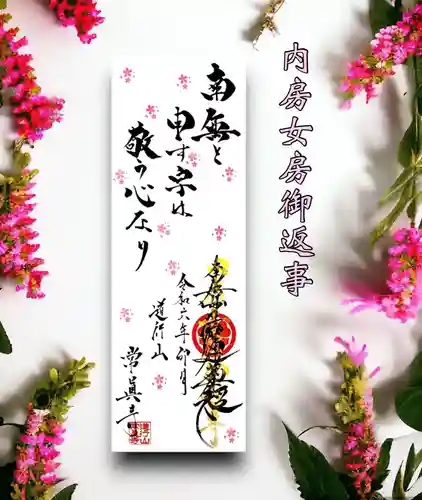 内房女房御返事
南無と
申す字は
敬う心なり
南無妙法蓮華経
令和六年卯月
道行山
常眞寺